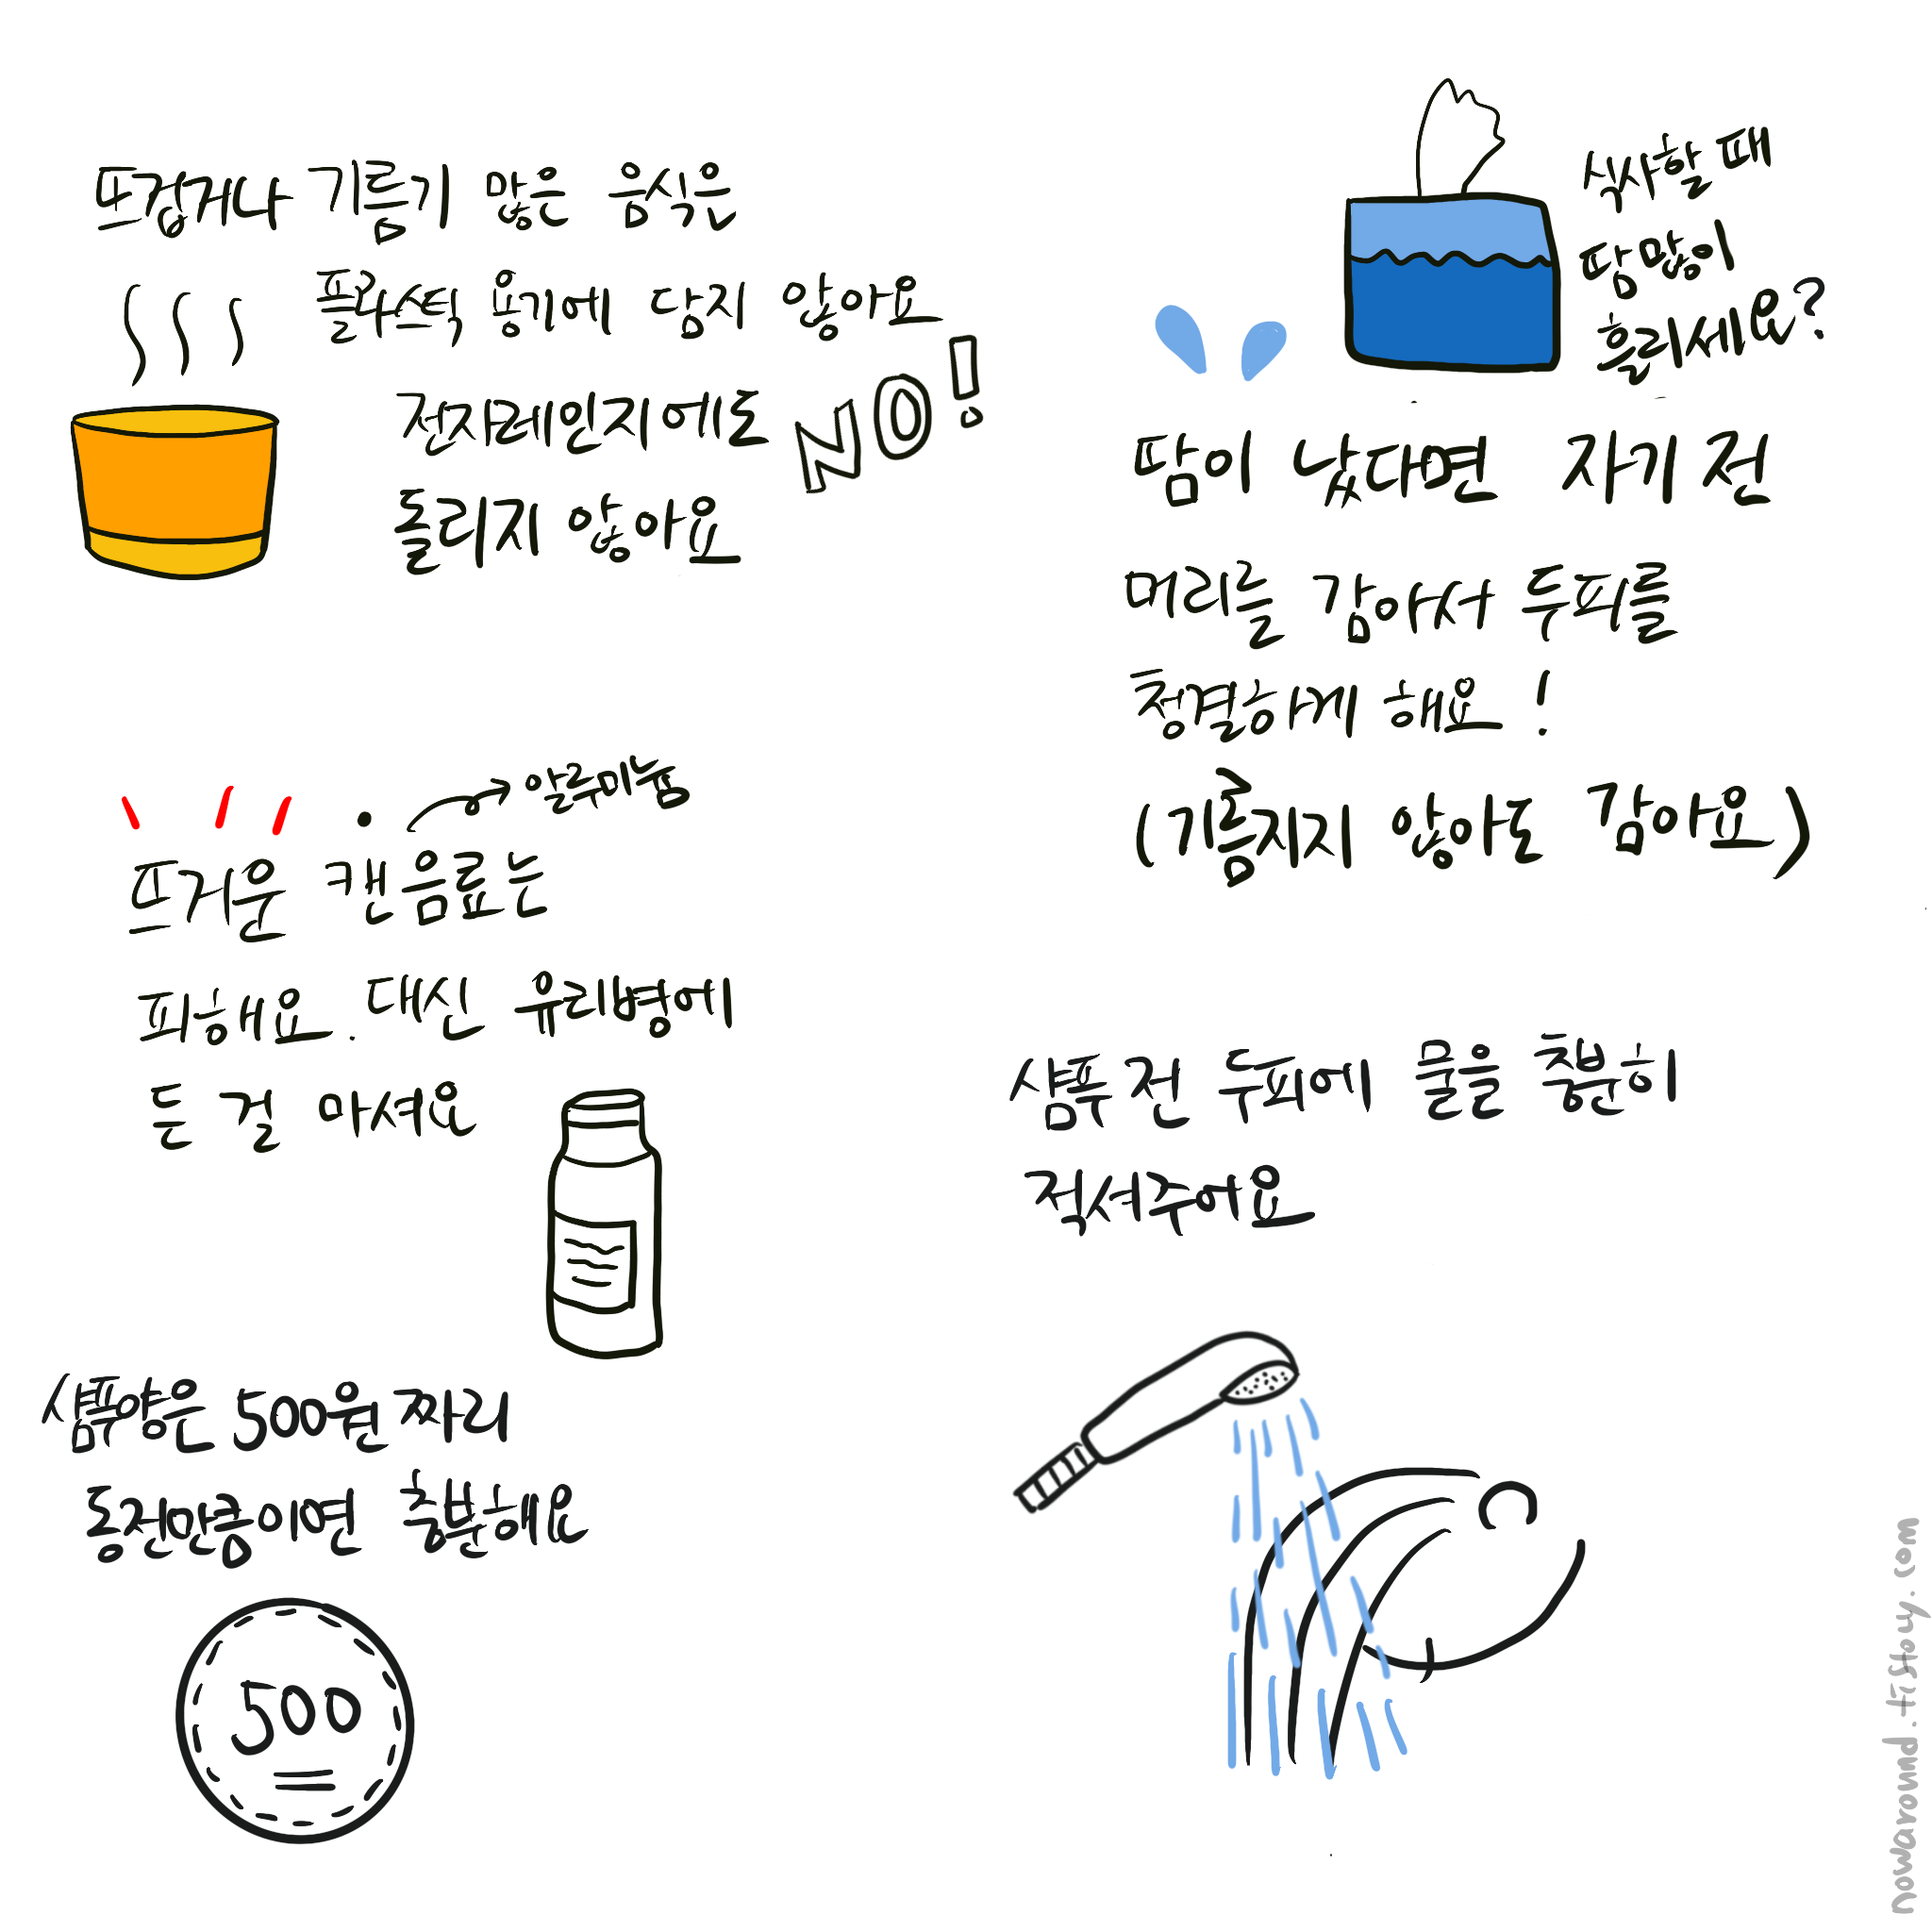 뜨겁거나 기름기 많은 음식은
플라스틱 용기에 담지 않아요
전자레인지에도
돌리지 않아요
NO!
식사할 때
땀 많이
흘리세요?
땀이 났다면 자기 전
머리를 감아서 두피를
청결하게 해요!
(기름지지 않아도 감아요)
알루미늄
뜨거운 캔음료는
피해요. 대신 유리병에
든 걸 마셔요
샴푸 전 두피에 물을 충분히
적셔주어요
샴푸양은 500원 짜리
동전만큼이면 충분해요
500
nowaromd.tistory.com